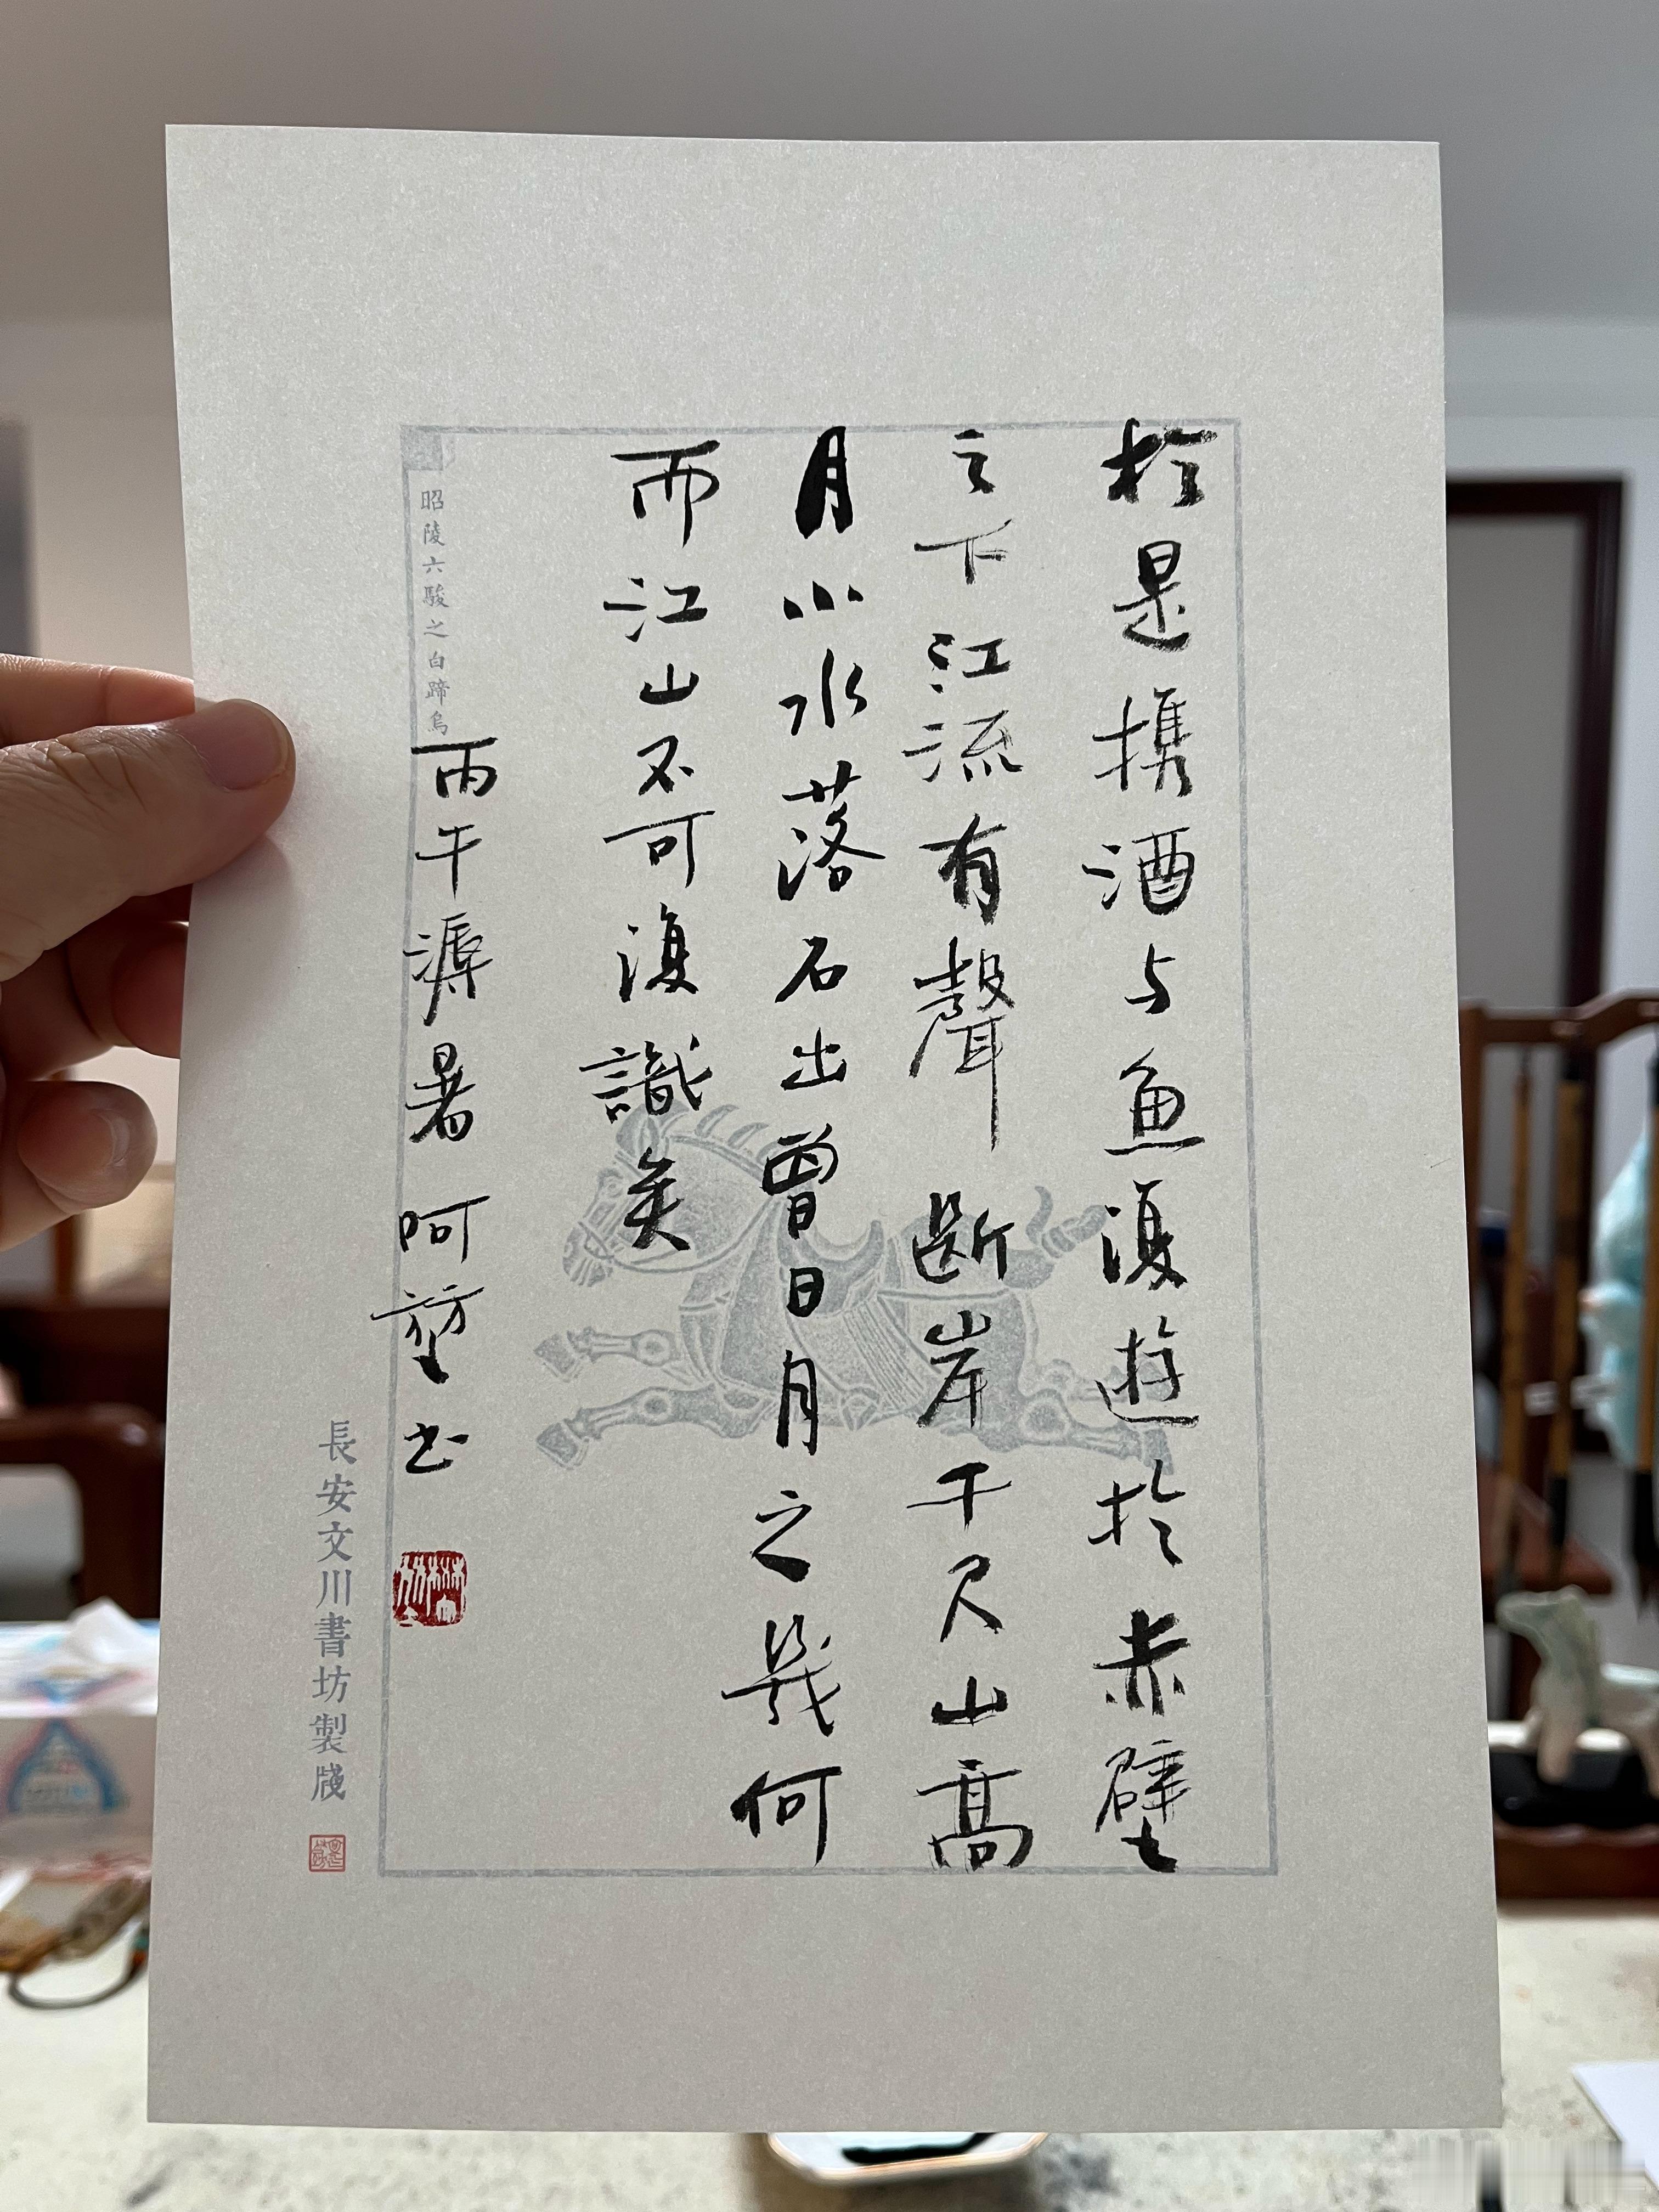 於是攜酒与魚復遊於赤壁
之下江流有聲斷岸千尺山高
月小水落石出曾日月之幾何
而江山不可復識矣
丙午溽暑 呵堃书
昭陵六駿之白蹄烏
長安文川書坊製牋